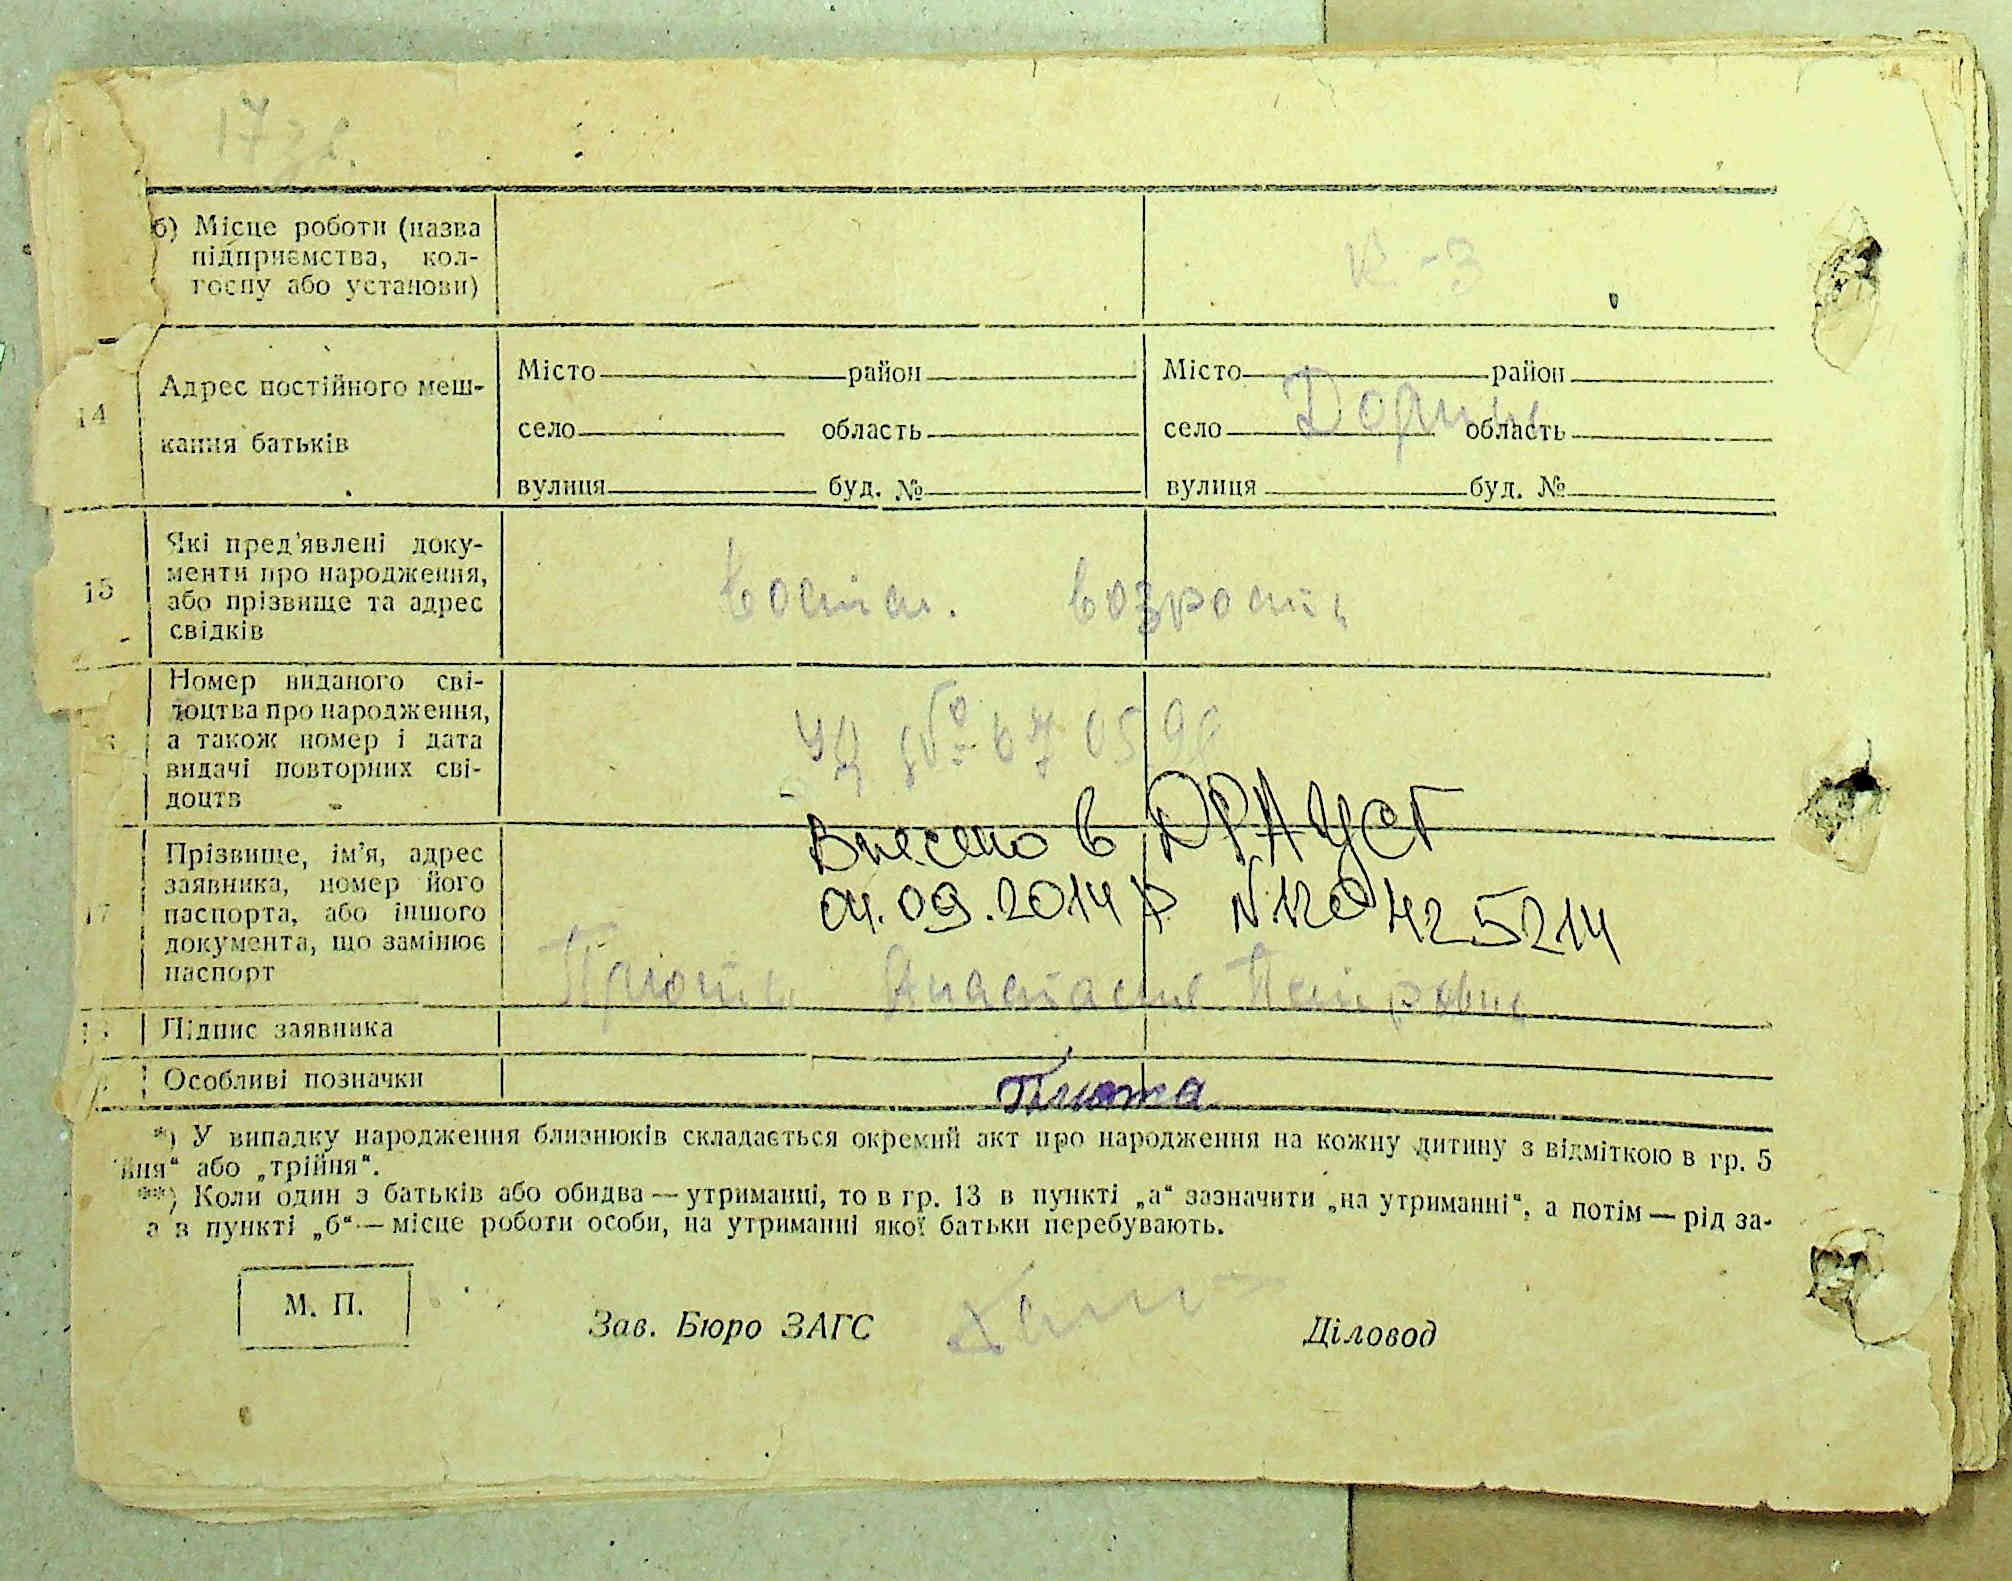 б) Місце роботи (назва
підприємства, кол-
госпу або установи)
К-З
14
Адрес постійного меш-
кання батьків
Місто район
село область
вулиця буд. №
Місто район
село область
вулиця буд. №
15
Які пред'явлені доку-
менти про народження,
або прізвище та адрес
свідків
возрост
Номер виданого сві-
доцтва про народження,
а також номер і дата
видачі повторних сві-
доцтв
Внесено в ДРАЦСГ
04.09.2014 р N120425214
17
Прізвище, ім'я, адрес
заявника, номер його
паспорта, або іншого
документа, що замінює
паспорт
Анастасия Петровна
Підпис заявника
Особливі позначки
Плюта
*) У випадку народження близнюків складається окремий акт про народження на кожну дитину з відміткою в гр. 5
йня“ або „трійня“.
**) Коли один з батьків або обидва — утриманці, то в гр. 13 в пункті „а“ зазначити „на утриманні“, а потім — рід за-
а в пункті „б“ — місце роботи особи, на утриманні якої батьки перебувають.
М. П.
Зав. Бюро ЗАГС
Діловод